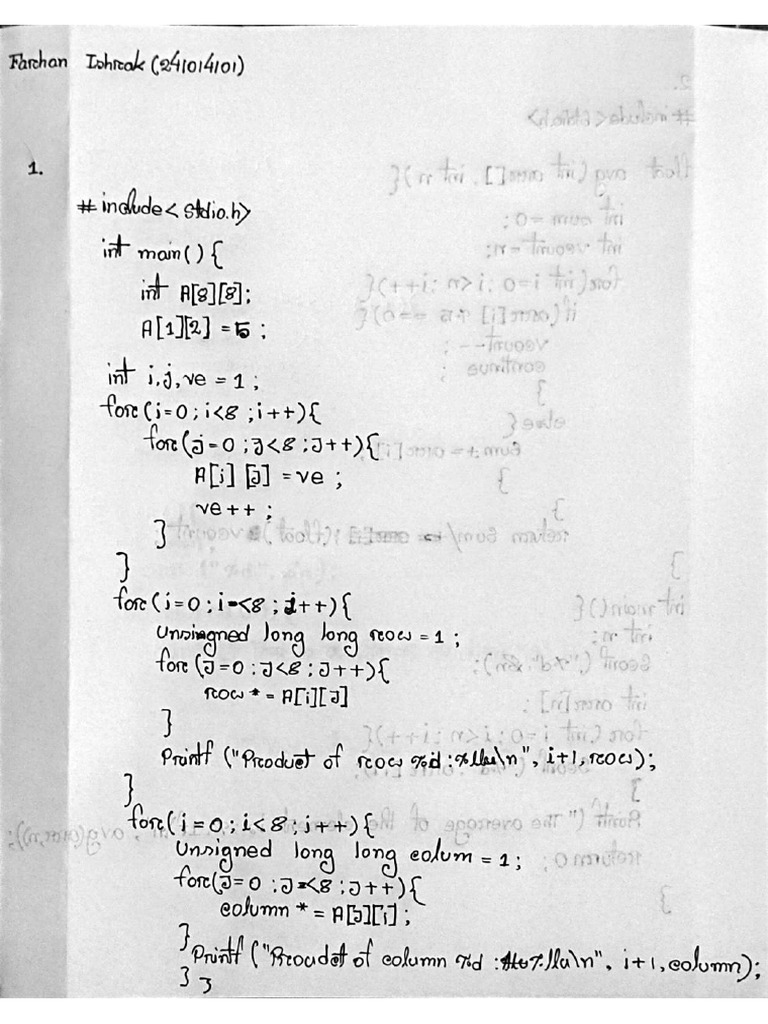 Farhan Ishrak (241014101)
1.
#include<stdio.h>
int main(){
int A[8][8];
A[1][2] = 5;
int i,j,ve = 1;
for(i=0; i<8; i++){
for(j=0; j<8; j++){
A[i][j] = ve;
ve++;
}
}
for(i=0; i<8; i++){
Unsigned long long row = 1;
for(j=0; j<8; j++){
row *= A[i][j]
}
Printf ("Product of row %d: %llu\n", i+1, row);
}
for(i=0; i<8; i++){
Unsigned long long colum = 1;
for(j=0; j<8; j++){
column *= A[j][i];
}
Printf ("Proudct of column %d: %llu\n", i+1, column);
} }